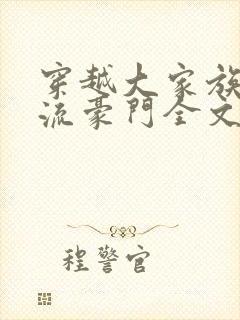 穿越大家族
流豪門全文
程警官